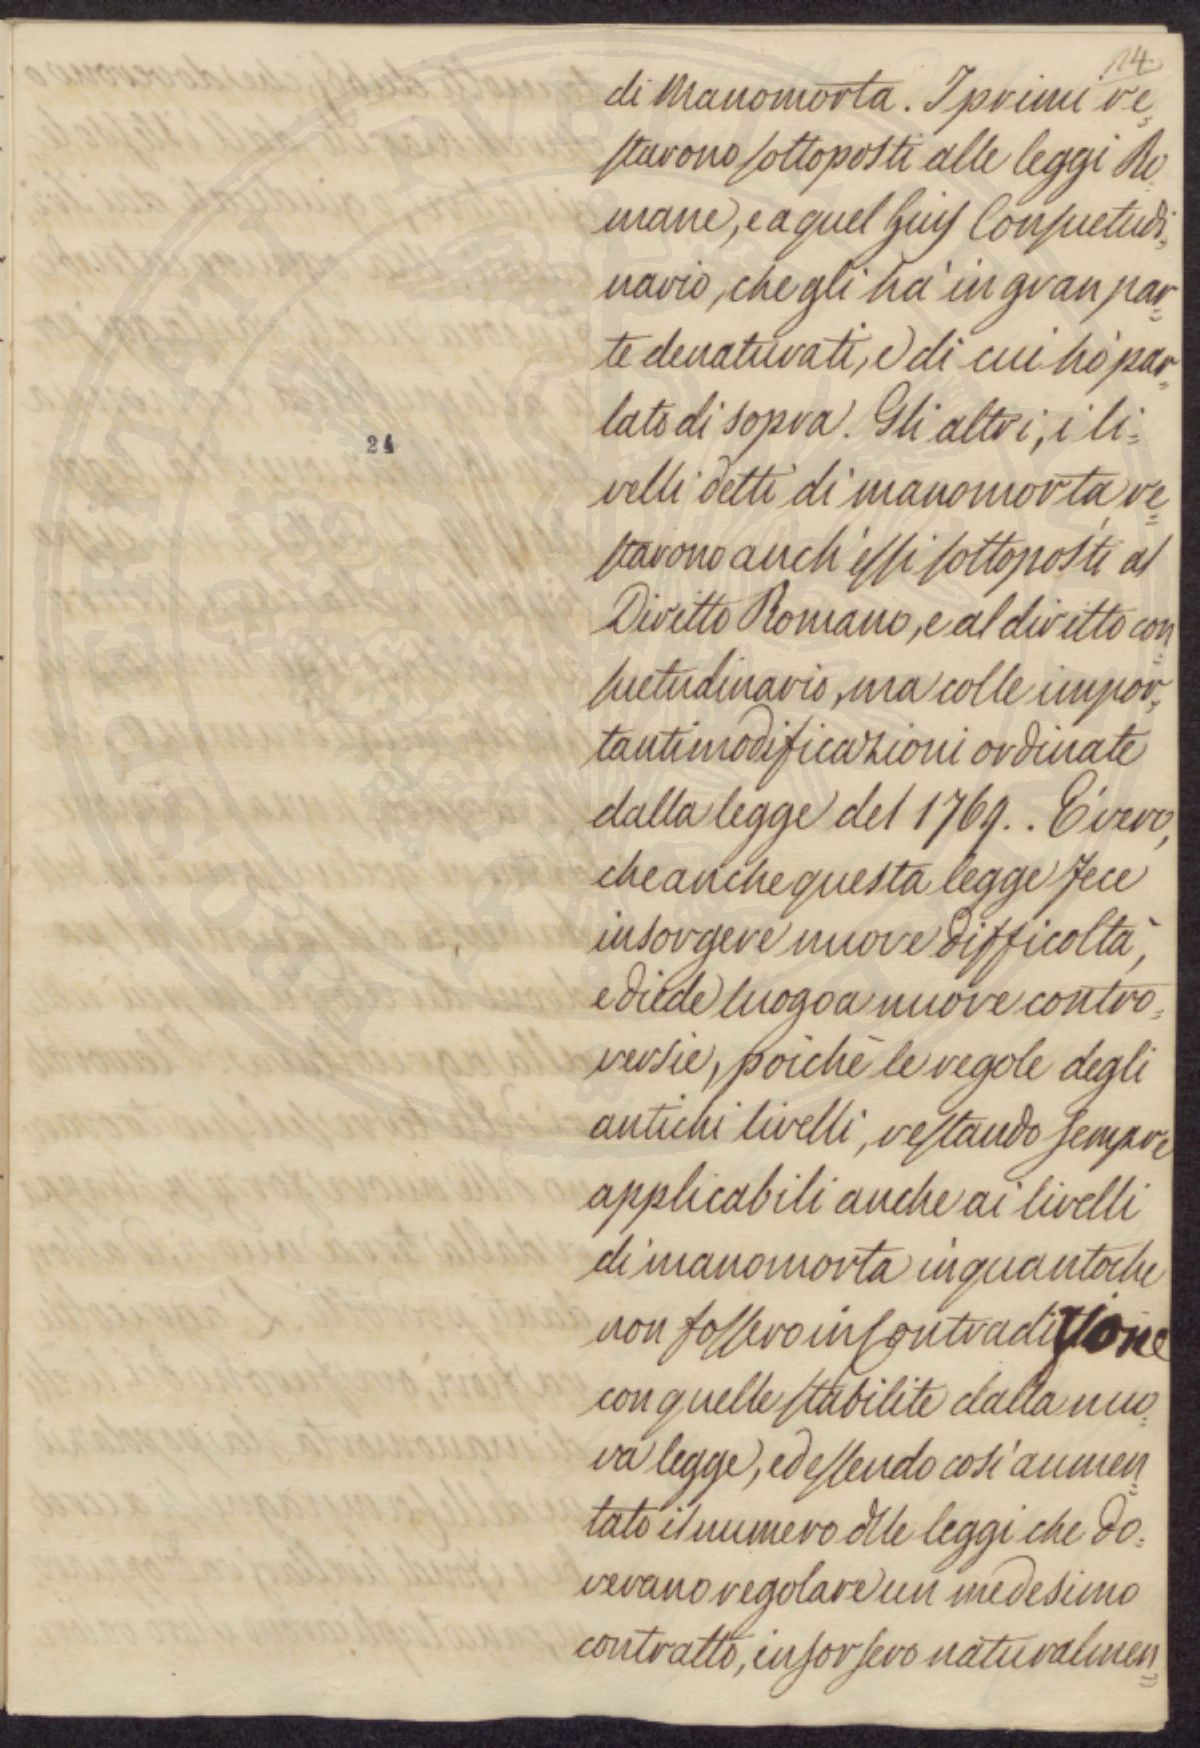 24
di Manomorta. I primi re=
starono sottoposti alle leggi Ro=
mane, e a quel Gius Consuetudi=
nario, che gli hà in gran par=
te denaturati, e di cui hò par=
lato di sopra. Gli altri, i li=
24
velli detti di manomorta, re=
starono anch'essi sottoposti al
Diritto Romano, e al diritto con=
suetudinario, ma colle impor=
tanti modificazioni ordinate
dalla legge del 1769.. È vero,
che anche questa legge fece
insorgere nuove difficoltà,
e diede luogo a nuove contro=
versie, poichè le regole degli
antichi livelli, restando sempre
applicabili anche ai livelli
di manomorta in quanto che
non fossero in contradizione
con quelle stabilite dalla nuo=
va legge, ed essendo così aumen=
tato il numero dlle leggi che do=
vevano regolare un medesimo
contratto, insorsero naturalmen=